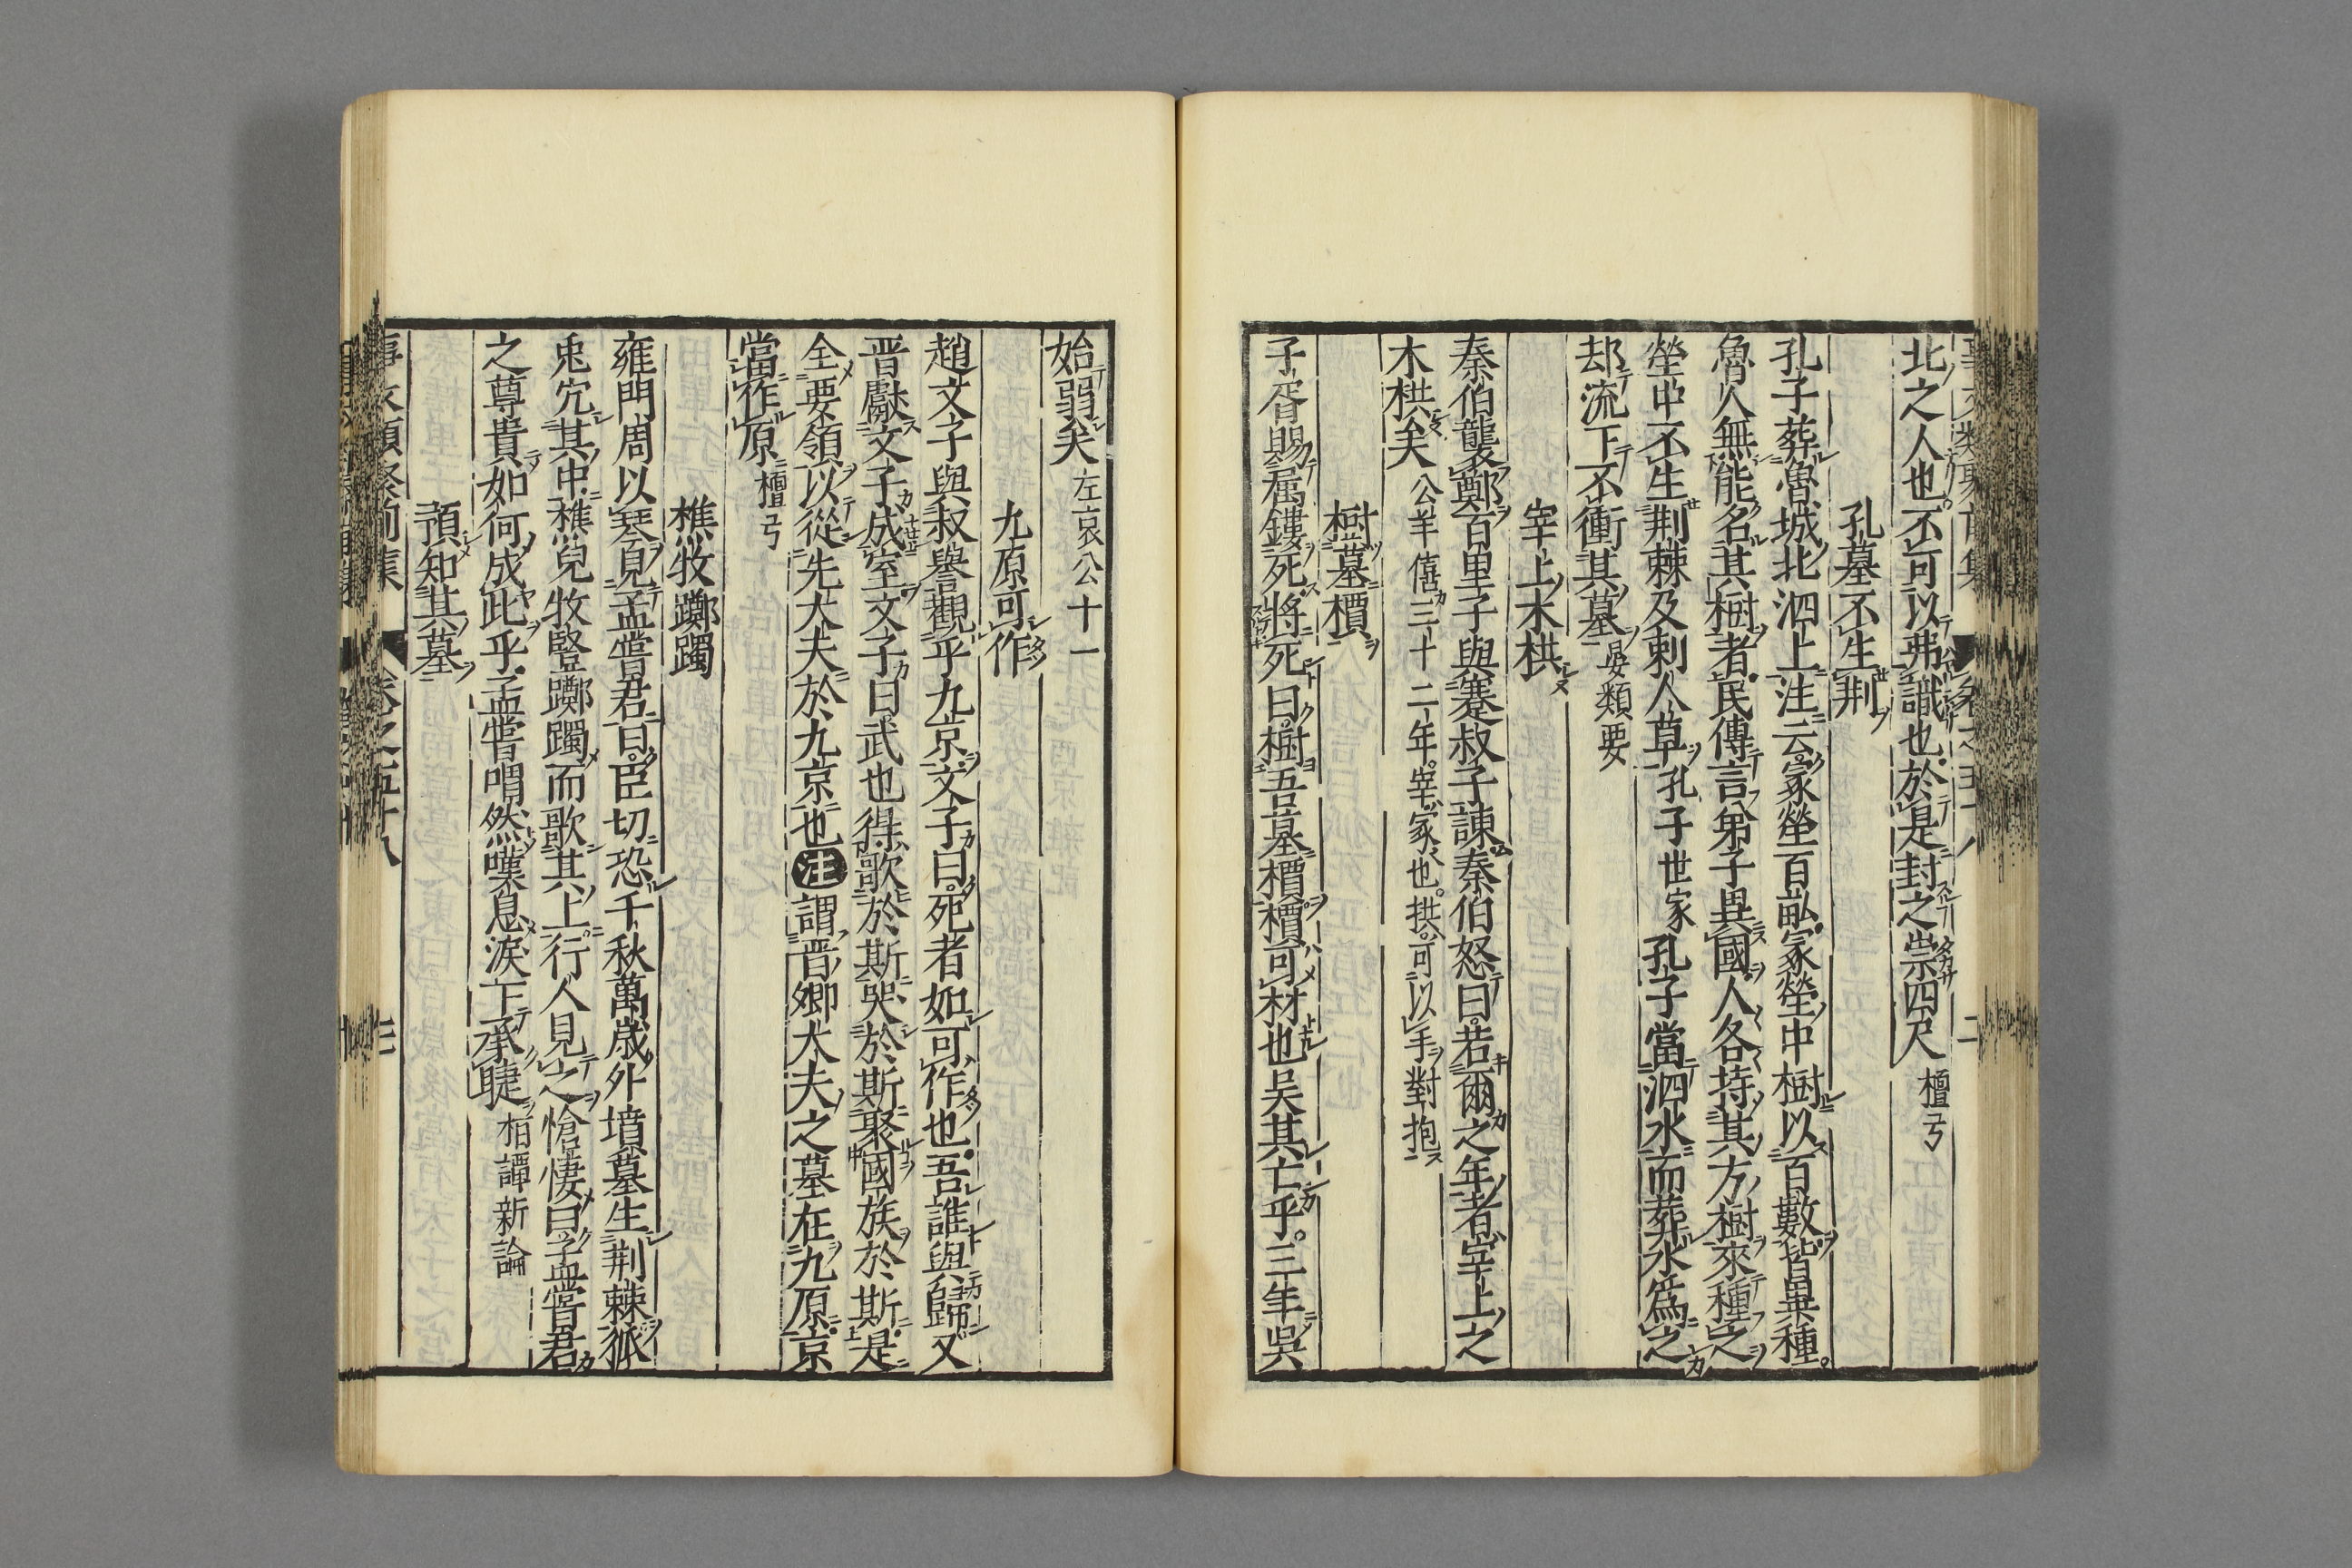 北之人也不可以弗識也於是封之崇四尺 檀弓
孔墓不生荆
孔子葬魯城北泗上注云冢塋百畝冢塋中樹以百數皆異種
魯人無能名其樹者民傳言弟子異國人各持其方樹來種之
塋中不生荆棘及刺人草 孔子世家 孔子當泗水而葬水爲之
却流下不衝其墓 晏類要
宰上木栱
秦伯襲鄭百里子與蹇叔子諫秦伯怒曰若爾之年者宰上之
木栱矣 公羊僖三十二年宰冢也拱可以手對抱
樹墓檟
子胥賜属鏤死將死曰樹吾墓檟檟可材也吴其亡乎三年吳
始弱矣 左哀公十一
九原可作
趙文子與叔譽觀乎九京文子曰死者如可作也吾誰與歸又
晋獻文子成室文子曰武也得歌於斯哭於斯聚國族於斯是
全要領以從先大夫於九京也注謂晋卿大夫之墓在九原京
當作原 檀弓
樵牧躑躅
雍門周以琴見孟嘗君曰臣切恐千秋萬歲外墳墓生荆棘狐
兎穴其中樵兒牧豎躑躅而歌其上行人見之愴悽曰孟嘗君
之尊貴如何成此乎孟嘗喟然嘆息淚下承睫 桓譚新論
預知其墓
事文類聚前集 卷之五十八